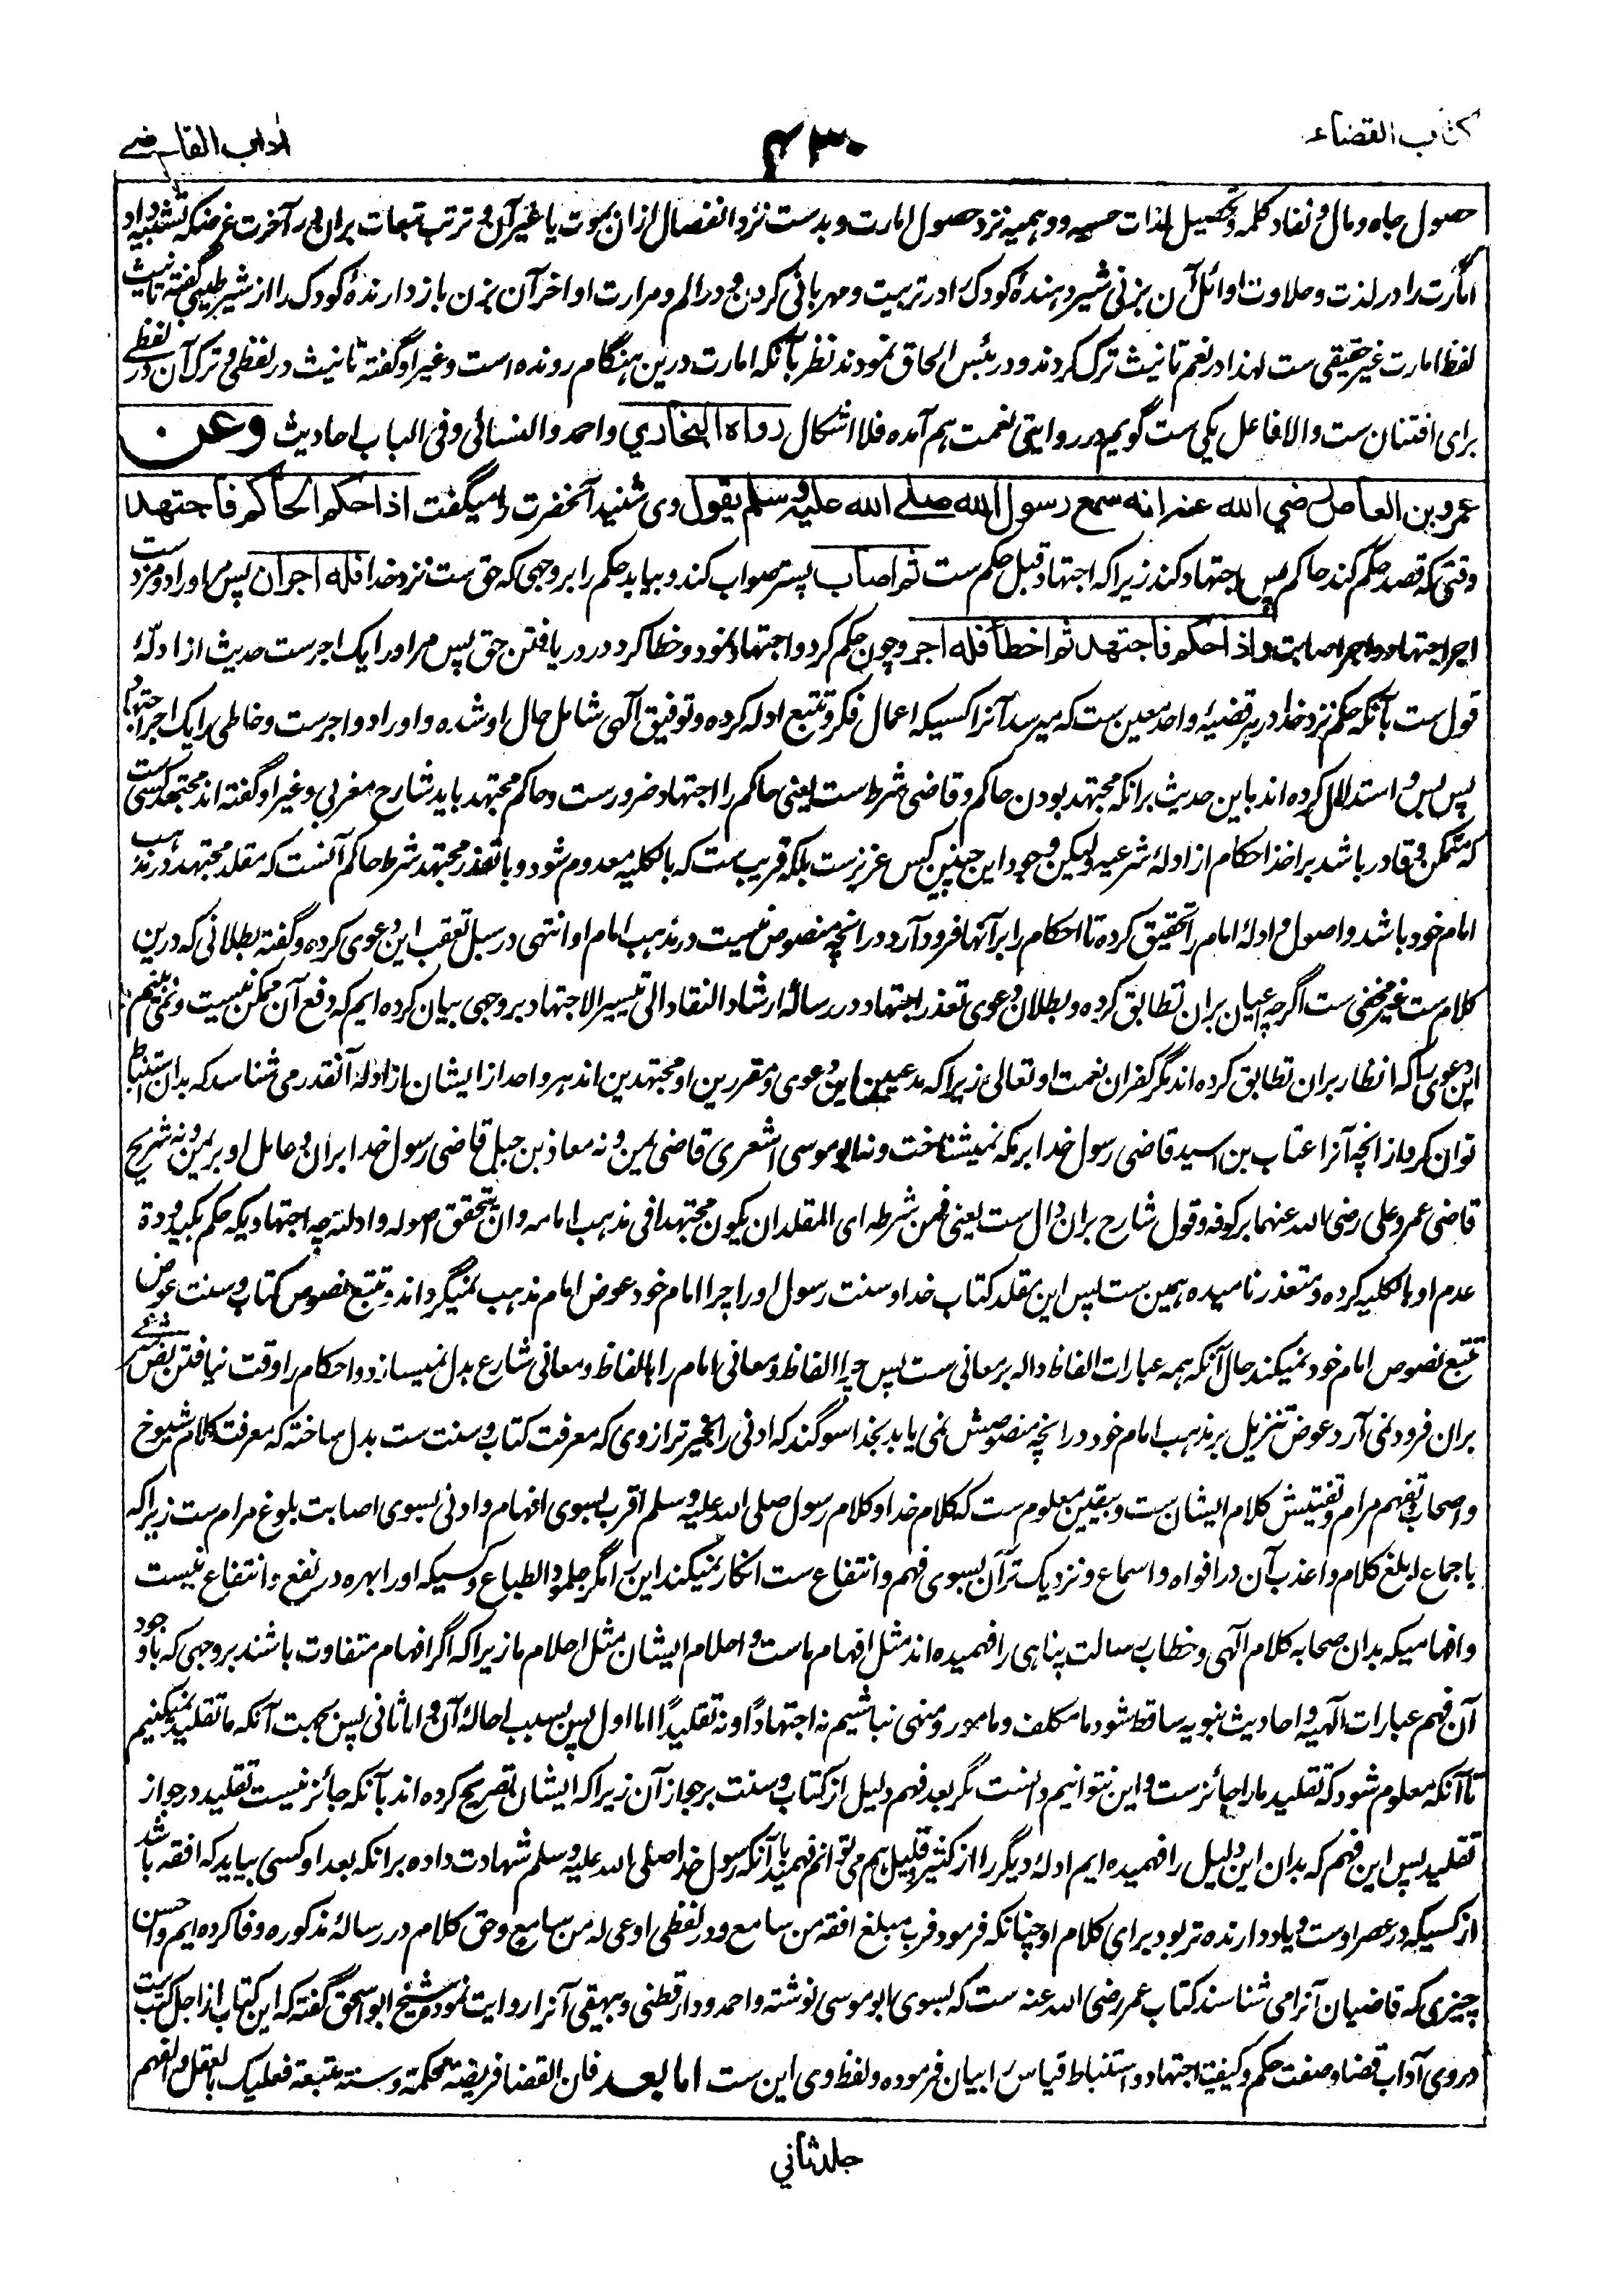 کتاب القضاء
۴۳۰
آداب القاضے
حصول جاه و مال و نفاد کلمه و تحصیل لذات حسیه و وهمیه نزد حصول امارت و بدست نزد انفصال ازان بموت یا غیر آن و ترتب تبعات بران در آخرت غرضکه تشبیه داد
امارت را در لذت و حلاوت اوائل آن بزنی شیر دهنده کودک را در تربیت و مهربانی کردن و در الم و مرارت اواخر آن بزن باز دارنده کودک را از شیر طیبی گفته تانیث
لفظ امارت غیر حقیقی ست لهذا در نعم تانیث ترک کردند و در بئس الحاق نمودند نظر بآنکه امارت درین هنگام رونده است و غیر او گفته تانیث در لفظی و ترک آن در لفظے
برای افتنان ست والا فاعل یکی ست گویم در روایتی نعمت هم آمده فلا اشکال رواه البخاري و احمد والنسائی وفی الباب احادیث وعن
عمرو بن العاص رضي الله عنه انه سمع رسول الله صلے الله علیه وسلم یقول وی شنید آنحضرت را میگفت اذا حکم الحاکم فاجتهد
وقتی که قصد حکم کند حاکم پس اجتهاد کند زیرا که اجتهاد قبل حکم ست ثم اصاب پستر صواب کند و بیابد حکم را بر وجهی که حق ست نزد خدا فله اجران پس مر او را دو مزدست
اجر اجتهاد و اجر اصابت و اذا حکم فاجتهد ثم اخطأ فله اجر و چون حکم کرد و اجتهاد نمود و خطا کرد در دریافتن حق پس مر او را یک اجرست حدیث از ادلۂ
قول ست بآنکه حکم نزد خدا در هر قضیه واحد معین ست که میرسد آنرا کسیکه اعمال فکر و تتبع ادله کرده و توفیق آلهی شامل حال او شده و او را دو اجرست و خاطی را یک اجر اجتهاد
پس بس و استدلال کرده اند باین حدیث برانکه مجتهد بودن حاکم و قاضی شرط ست یعنی حاکم را اجتهاد ضرورست و حاکم مجتهد باید شارح مغربی و غیر او گفته اند مجتهد کسی ست
که متمکن و قادر باشد بر اخذ احکام از ادلۂ شرعیه و لیکن وجود این چنین کس عزیزست بلکه قریب ست که بالکلیه معدوم شود و با تعذر مجتهد شرط حاکم آنست که مقلد مجتهد در مذهب
امام خود باشد و اصول و ادلۂ امام را تحقیق کرده تا احکام را بر آنها فرود آرد در انچه منصوص نیست در مذهب امام او انتهی در سبل تعقب این دعوی کرده و گفته بطلانی که درین
کلام ست غیر مخفی ست اگرچه اعیان بران تطابق کرده و بطلان دعوی تعذر اجتهاد در رسالۂ ارشاد النقاد الی تیسیر الاجتهاد بر وجهی بیان کرده ایم که دفع آن ممکن نیست و نمی بینم
این دعوی را که انظار بران تطابق کرده اند مگر کفران نعمت او تعالی زیرا که مدعیین این دعوی و مقررین او مجتهدین اند هر واحد از ایشان از ادله آنقدر می شناسد که بدان استنباط
توان کرد از انچه آنرا عتاب بن اسید قاضی رسول خدا بر مکه نمیشناخت و نه ابو موسی اشعری قاضی یمن و نه معاذ بن جبل قاضی رسول خدا بران و عامل او بر یمن و نه شریح
قاضی عمر و علی رضی الله عنهما بر کوفه و قول شارح بران دال ست یعنی فمن شرطه ای المقلد ان یکون مجتهدا فی مذهب امامه وان یتحقق اصوله وادلته چه اجتهادیکه حکم بکیدودة
عدم او بالکلیه کرده و متعذر نامیده همین ست پس این مقلد کتاب خدا و سنت رسول او را چرا امام خود عوض امام مذهب نمیگرداند و تتبع نصوص کتاب و سنت عوض
تتبع نصوص امام خود نمیکند حال آنکه همه عبارات الفاظ داله بر معانی ست پس چرا الفاظ و معانی امام را بالفاظ و معانی شارع بدل نمیسازد و احکام را وقت نیافتن نص شرعے
بران فرود نمی آرد عوض تنزیل بر مذهب امام خود در انچه منصوصش نمی یابد بخدا سوگند که ادنی را بخیر تر ازوی که معرفت کتاب و سنت ست بدل ساخته که معرفت کلام شیوخ
و اصحاب و تفهم مرام و تفتیش کلام ایشان ست و بیقین معلوم ست که کلام خدا و کلام رسول صلی الله علیه وسلم اقرب بسوی افهام و ادنی بسوی اصابت بلوغ مرام ست زیرا که
باجماع ابلغ کلام و اعذب آن در افواه و اسماع و نزدیک تر آن بسوی فهم و انتفاع ست انکار نمیکند این را مگر جلمود الطباع و کسیکه او را بهره در نفع و انتفاع نیست
و افهامیکه بدان صحابه کلام آلهی و خطاب رسالت پناهی را فهمیده اند مثل افهام ماست و احلام ایشان مثل احلام ما زیرا که اگر افهام متفاوت باشند بر وجهی که باوجود
آن فهم عبارات آلهیه و احادیث نبویه ساقط شود ما مکلف و مامور و منهی نباشیم نه اجتهاداً و نه تقلیداً اما اول پس بسبب احالۂ آن و اما ثانی پس بجهت آنکه ما تقلید نمیکنیم
تا آنکه معلوم شود که تقلید ما را جائزست و این نتوانیم دانست مگر بعد فهم دلیل از کتاب و سنت بر جواز آن زیرا که ایشان تصریح کرده اند بآنکه جائز نیست تقلید در جواز
تقلید پس این فهم که بدان این دلیل را فهمیده ایم ادلۂ دیگر را از کثیر و قلیل هم می توانم فهمید با آنکه رسول خدا صلی الله علیه وسلم شهادت داده برانکه بعد او کسی بیاید که افقه باشد
از کسیکه در عصر اوست و یاد دارنده تر بود برای کلام او چنانکه فرمود فرب مبلغ افقه من سامع و در لفظی اوعی له من سامع و حق کلام در رسالۂ مذکوره وفا کرده ایم و احسن
چیزی که قاضیان آنرا می شناسند کتاب عمر رضی الله عنه ست که بسوی ابو موسی نوشته و احمد و دارقطنی و بیهقی آنرا روایت نموده و شیخ ابو اسحق گفته که این کتاب از اجل کتب ست
در وی آداب قضا و صفت حکم و کیفیت اجتهاد و استنباط قیاس را بیان فرموده و لفظ وی این ست اما بعد فان القضا فریضة محکمة وسنة متبعة فعلیک بالعقل والفهم
جلد ثاني